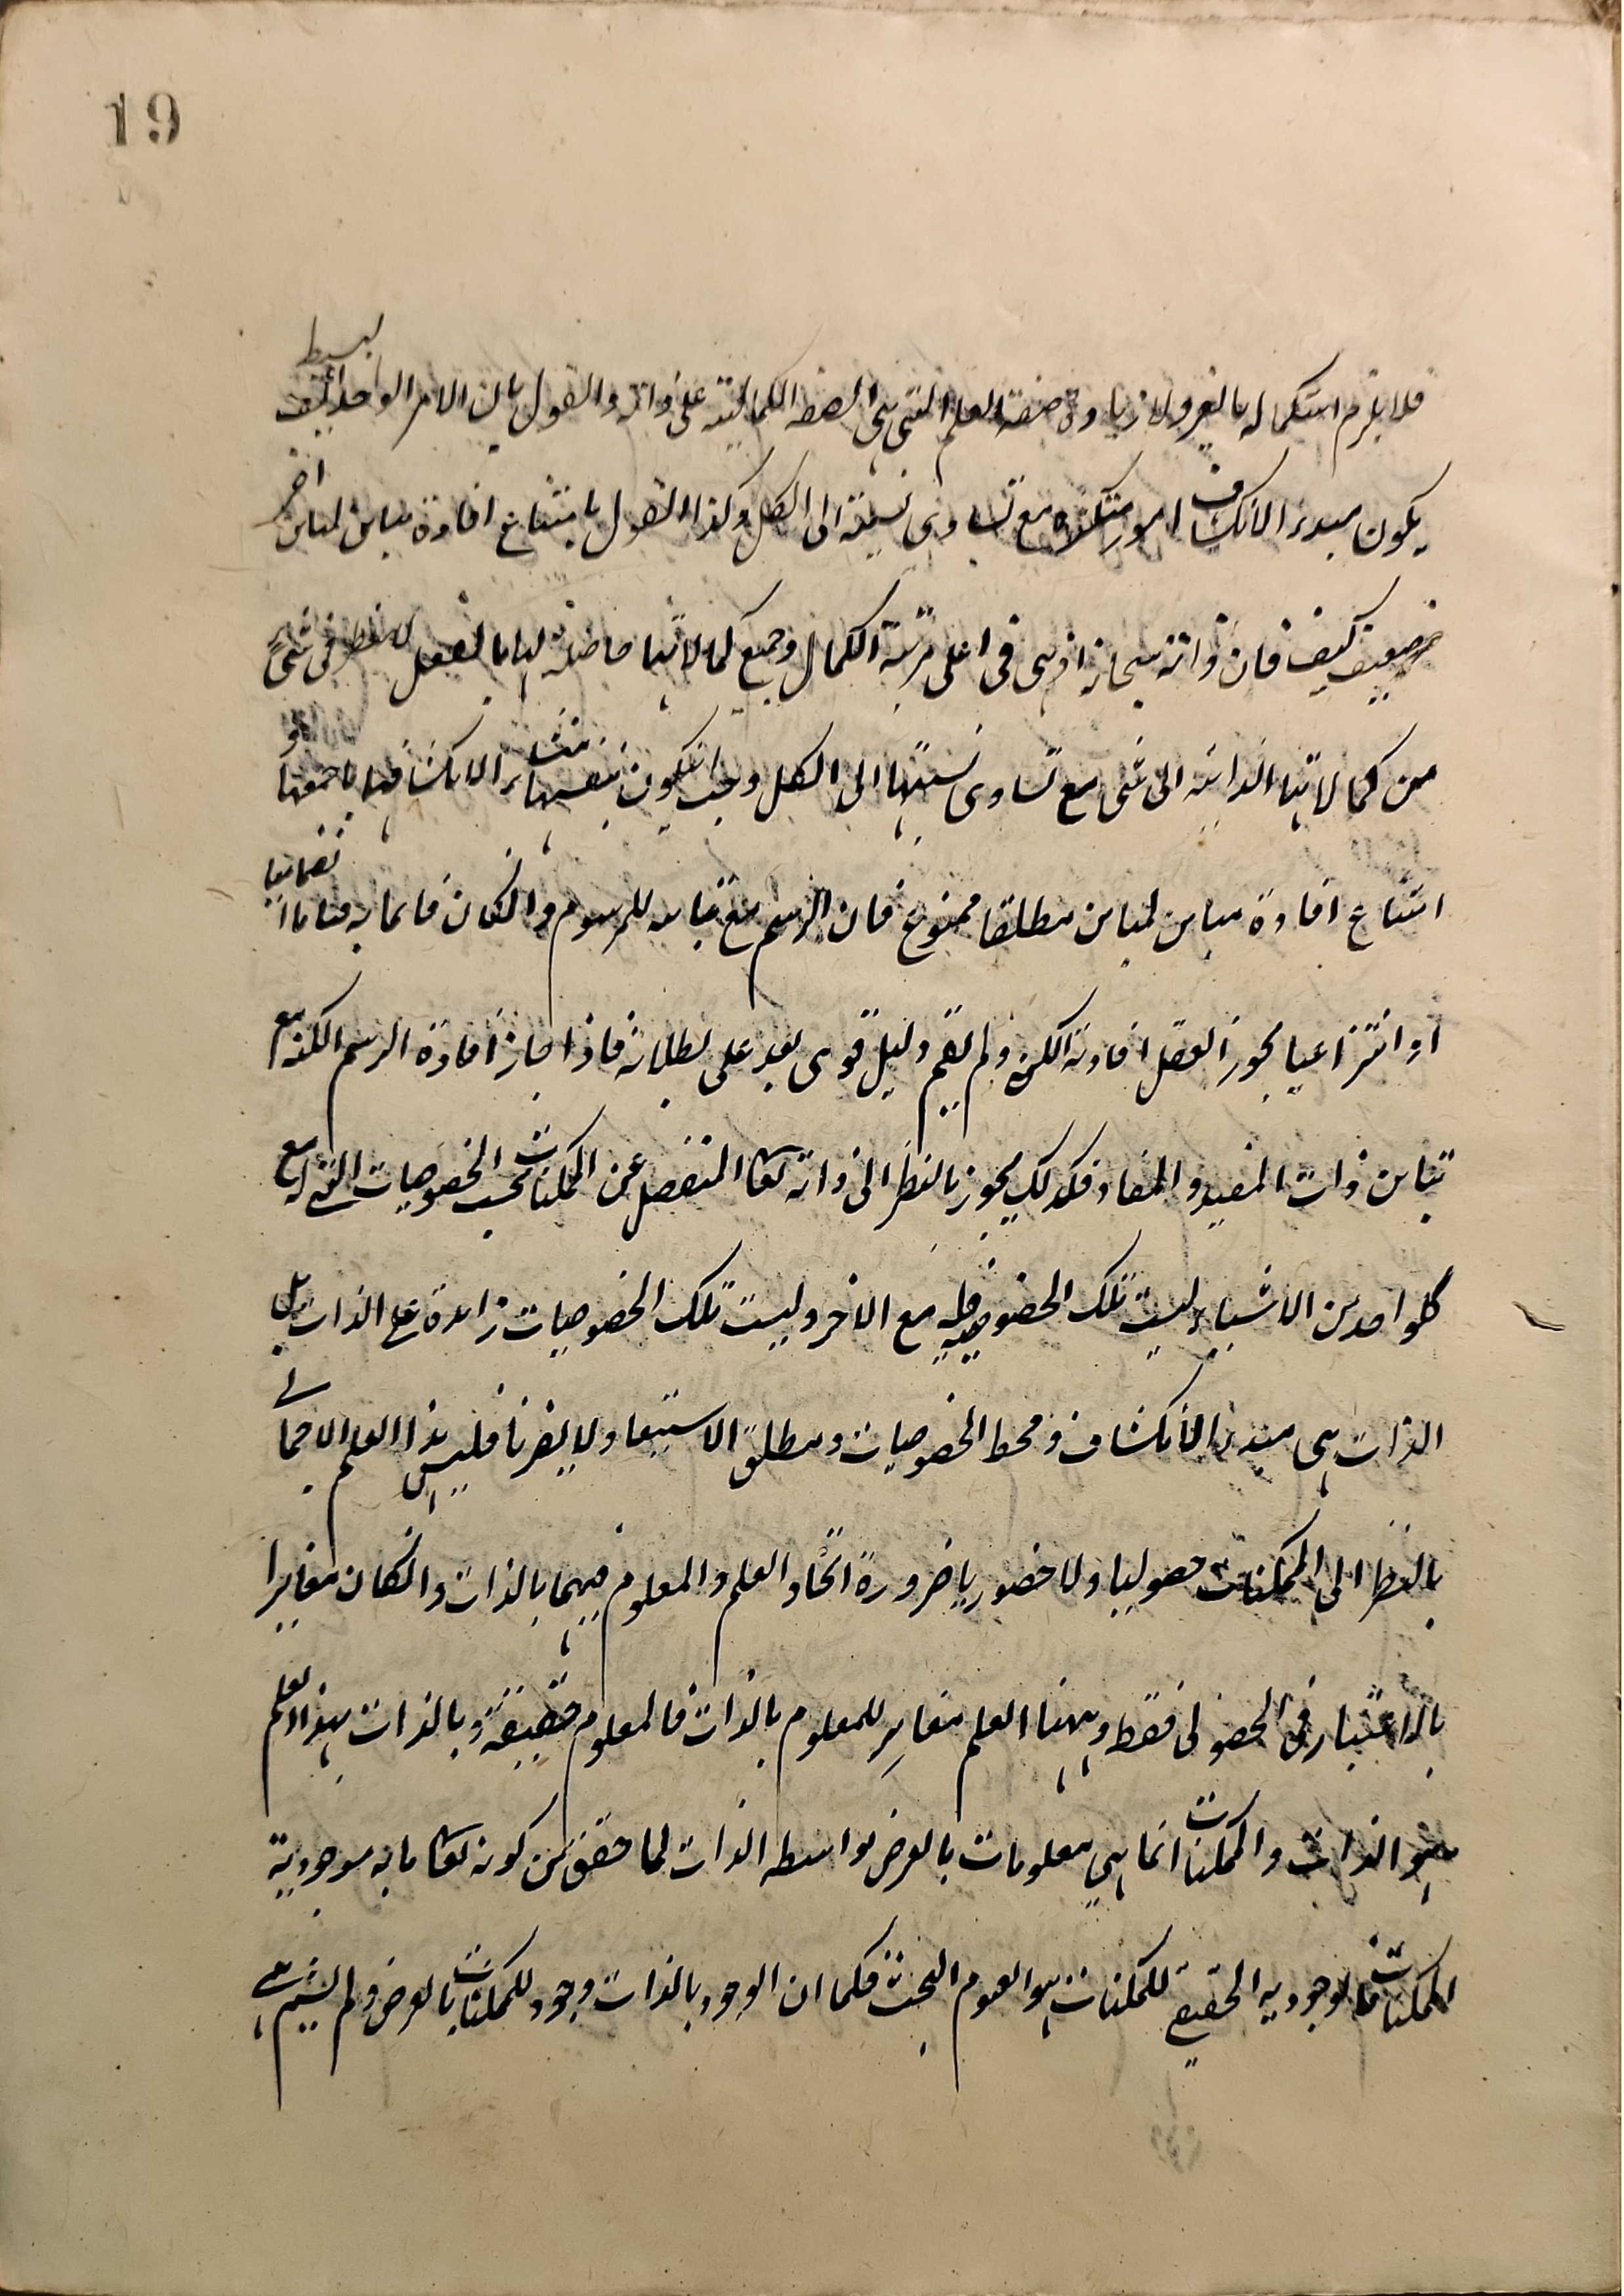 19
فلا يلزم استكماله بالغير ولا زيادة صفة العلم التى هى الصفة الكمالية على ذاته والقول بان الامر الواحد البسيط كيف
يكون مبدء الانكشاف امور متكثره مع تساوى نسبته الى الكل وكذا القول بامتناع افادة مباين لمباين اخر
ضعيف كيف فان ذاته سبحانه اذ هى فى اعلى مرتبة الكمال وجميع كمالاتها حاصلة لها بالفعل لا ينتظر فى شئ
من كمالاتها الذاتية الى شئ مع تساوى نسبتها الى الكل وجب ان يكون بنفسها منشاء الانكشافها باجمعها و
امتناع افادة مباين لمباين مطلقا ممنوع فان الرسم مع تباينه للمرسوم وان كان قائما به قياما انضماميا
او انتزاعيا يجوز العقل افادته الكنه ولم يقم دليل قوى بعد على بطلانه فاذا جاز افادة الرسم الكنه مع
تباين ذات المفيد والمفاد فكذلك يجوز بالنظر الى ذاته تعالى المنفصل عن الممكنات بحسب الخصوصيات التى له مع
كل واحد من الاشياء ليست تلك الخصوصية مع الاخر وليست تلك الخصوصيات زائدة على الذات بل
الذات هى مبدء الانكشاف ومحط الخصوصيات ومطلق الاستبعاد لا يضرنا فليس هذا العلم الاجمالى
بالنظر الى الممكنات حصوليا ولا حضوريا ضرورة اتحاد العلم والمعلوم فيهما بالذات وان كان مغايرا
بالاعتبار فى الحصولى فقط وههنا العلم مغاير للمعلوم بالذات فالمعلوم حقيقة وبالذات بهذا العلم
هو الذات والممكنات انما هى معلومات بالعرض بواسطة الذات لما حقق من كونه تعالى ما به موجودية
الممكنات فالموجودية الحقيقى للممكنات هو العدم البحت فكما ان الوجود بالذات وجود للممكنات بالعرض ولم يشم